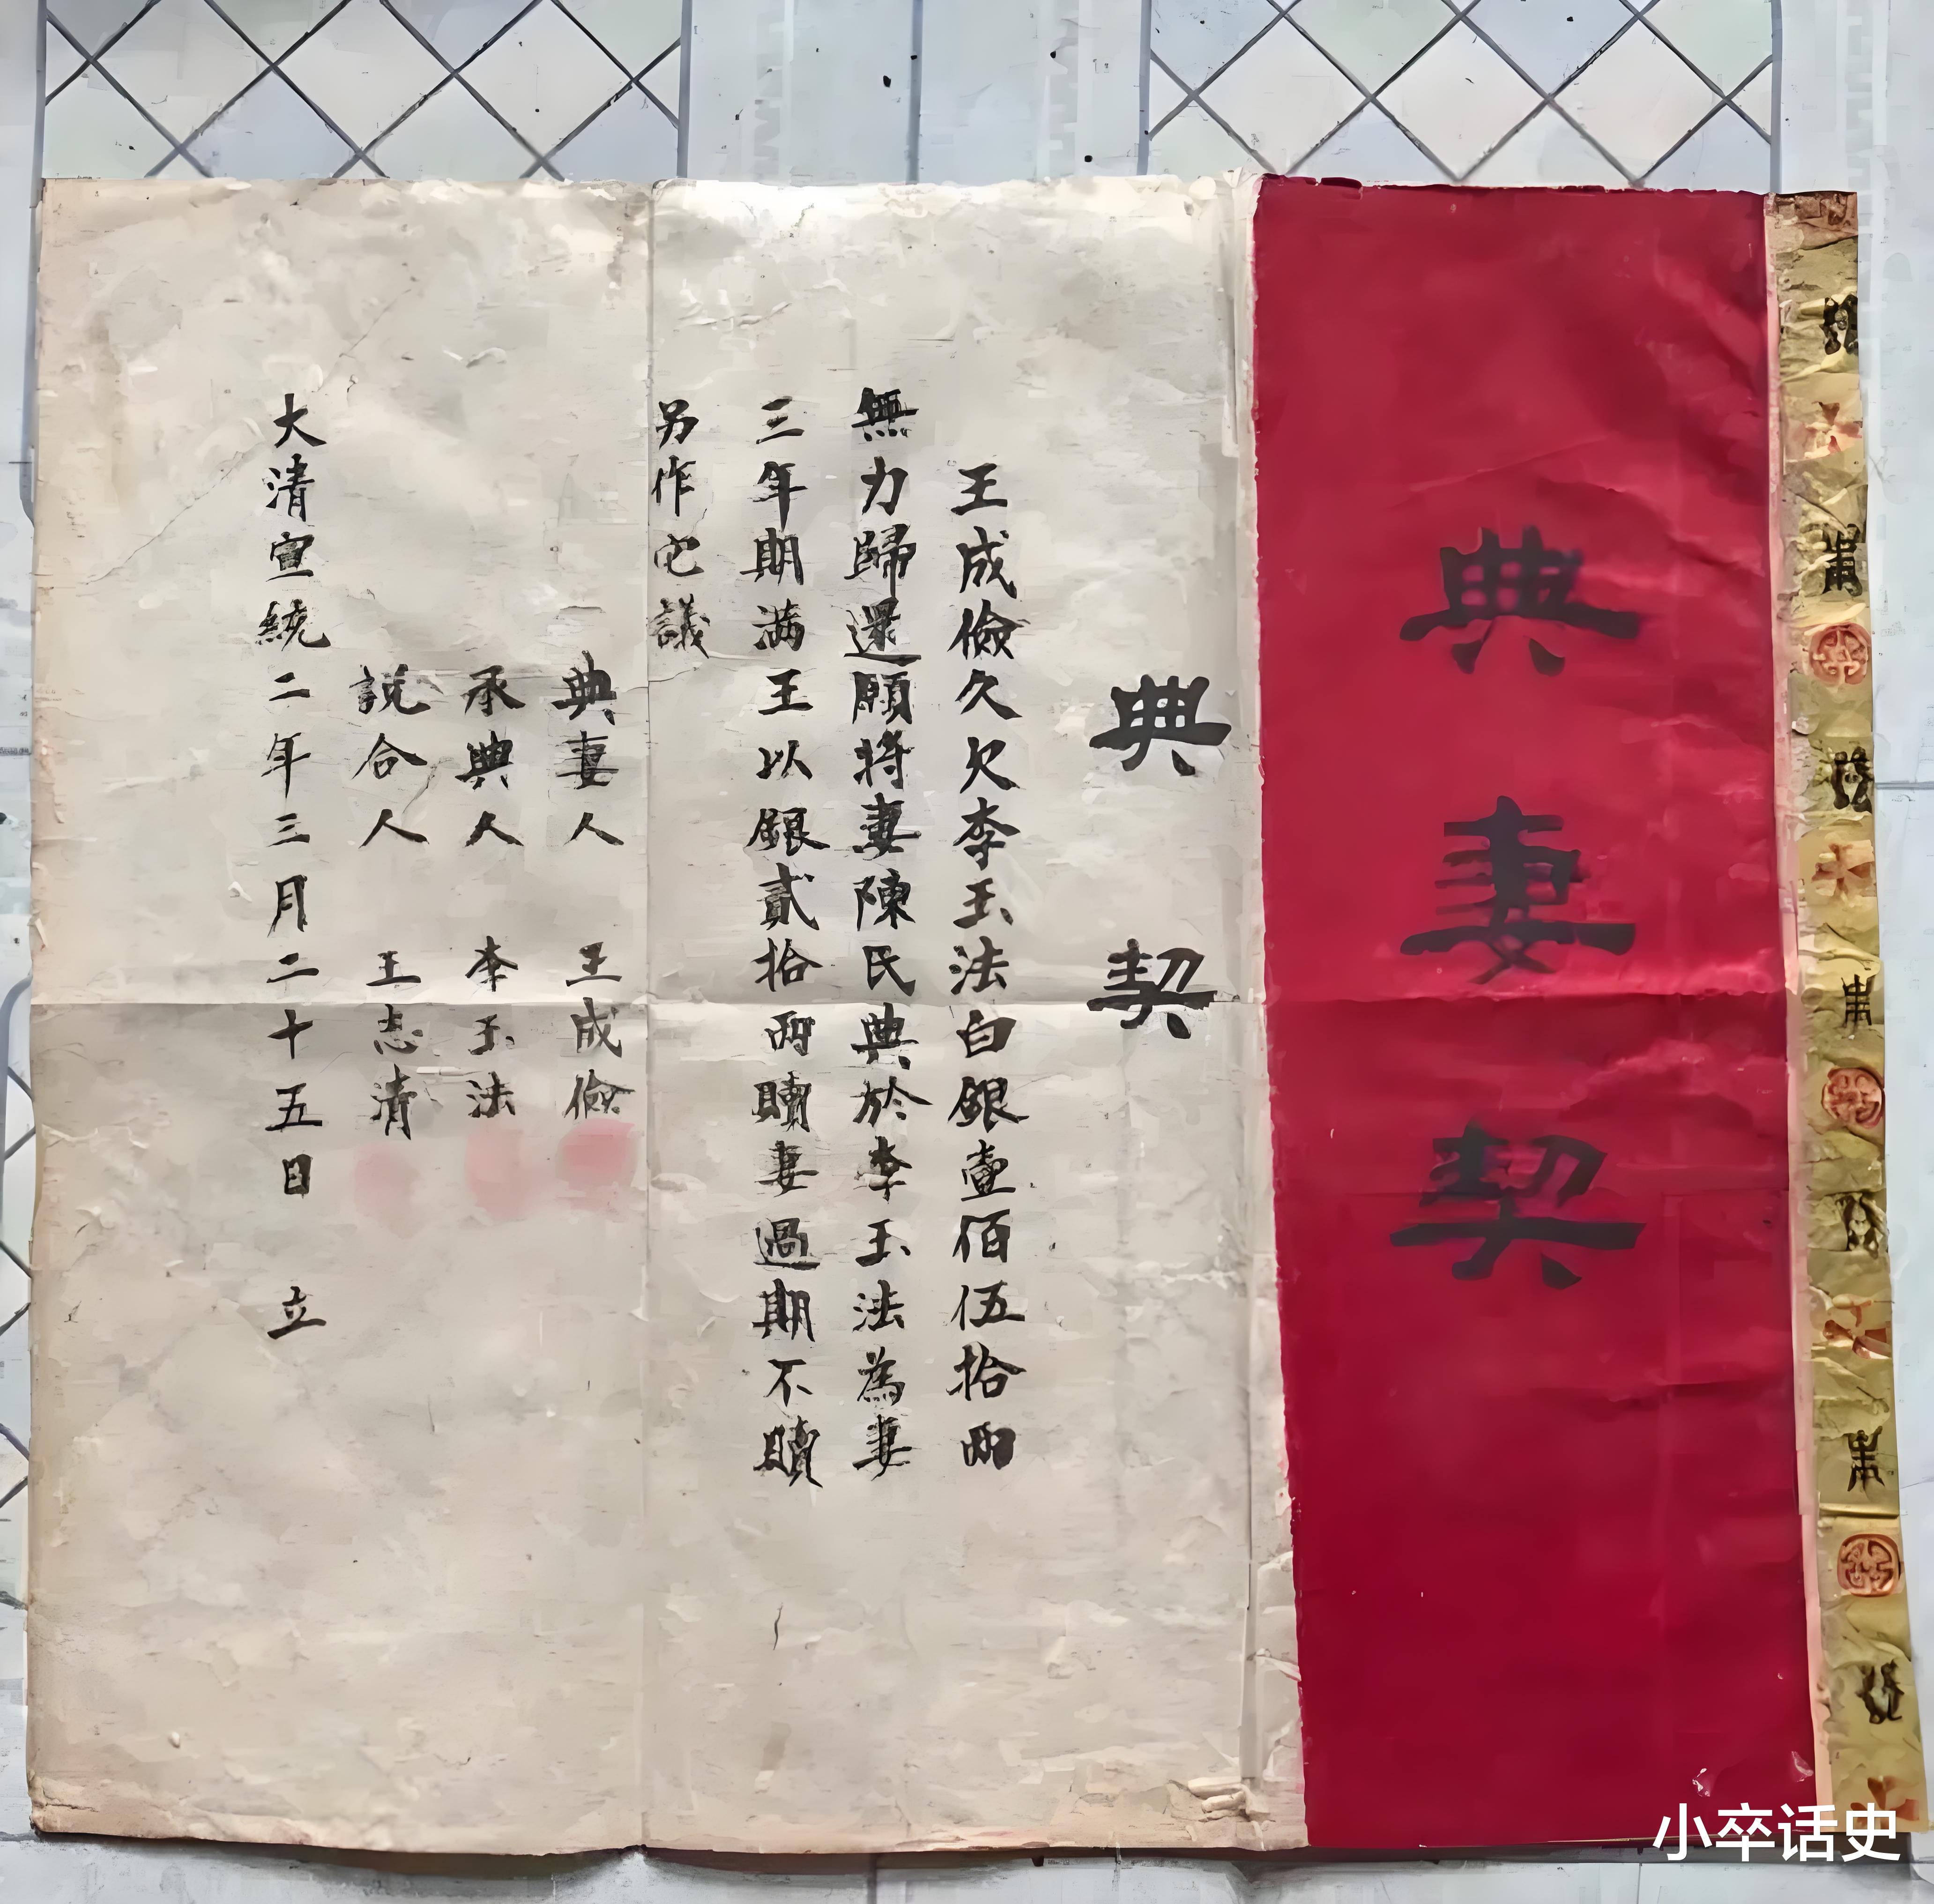 典妻契
典契
王成儉久欠李玉法白銀壹佰伍拾兩
無力歸還願將妻陳氏典於李玉法為妻
三年期满王以銀貳拾兩贖妻過期不贖
另作它議
典妻人 王成儉
承典人 李玉法
説合人 王志清
大清宣統二年三月二十五日 立
小卒话史